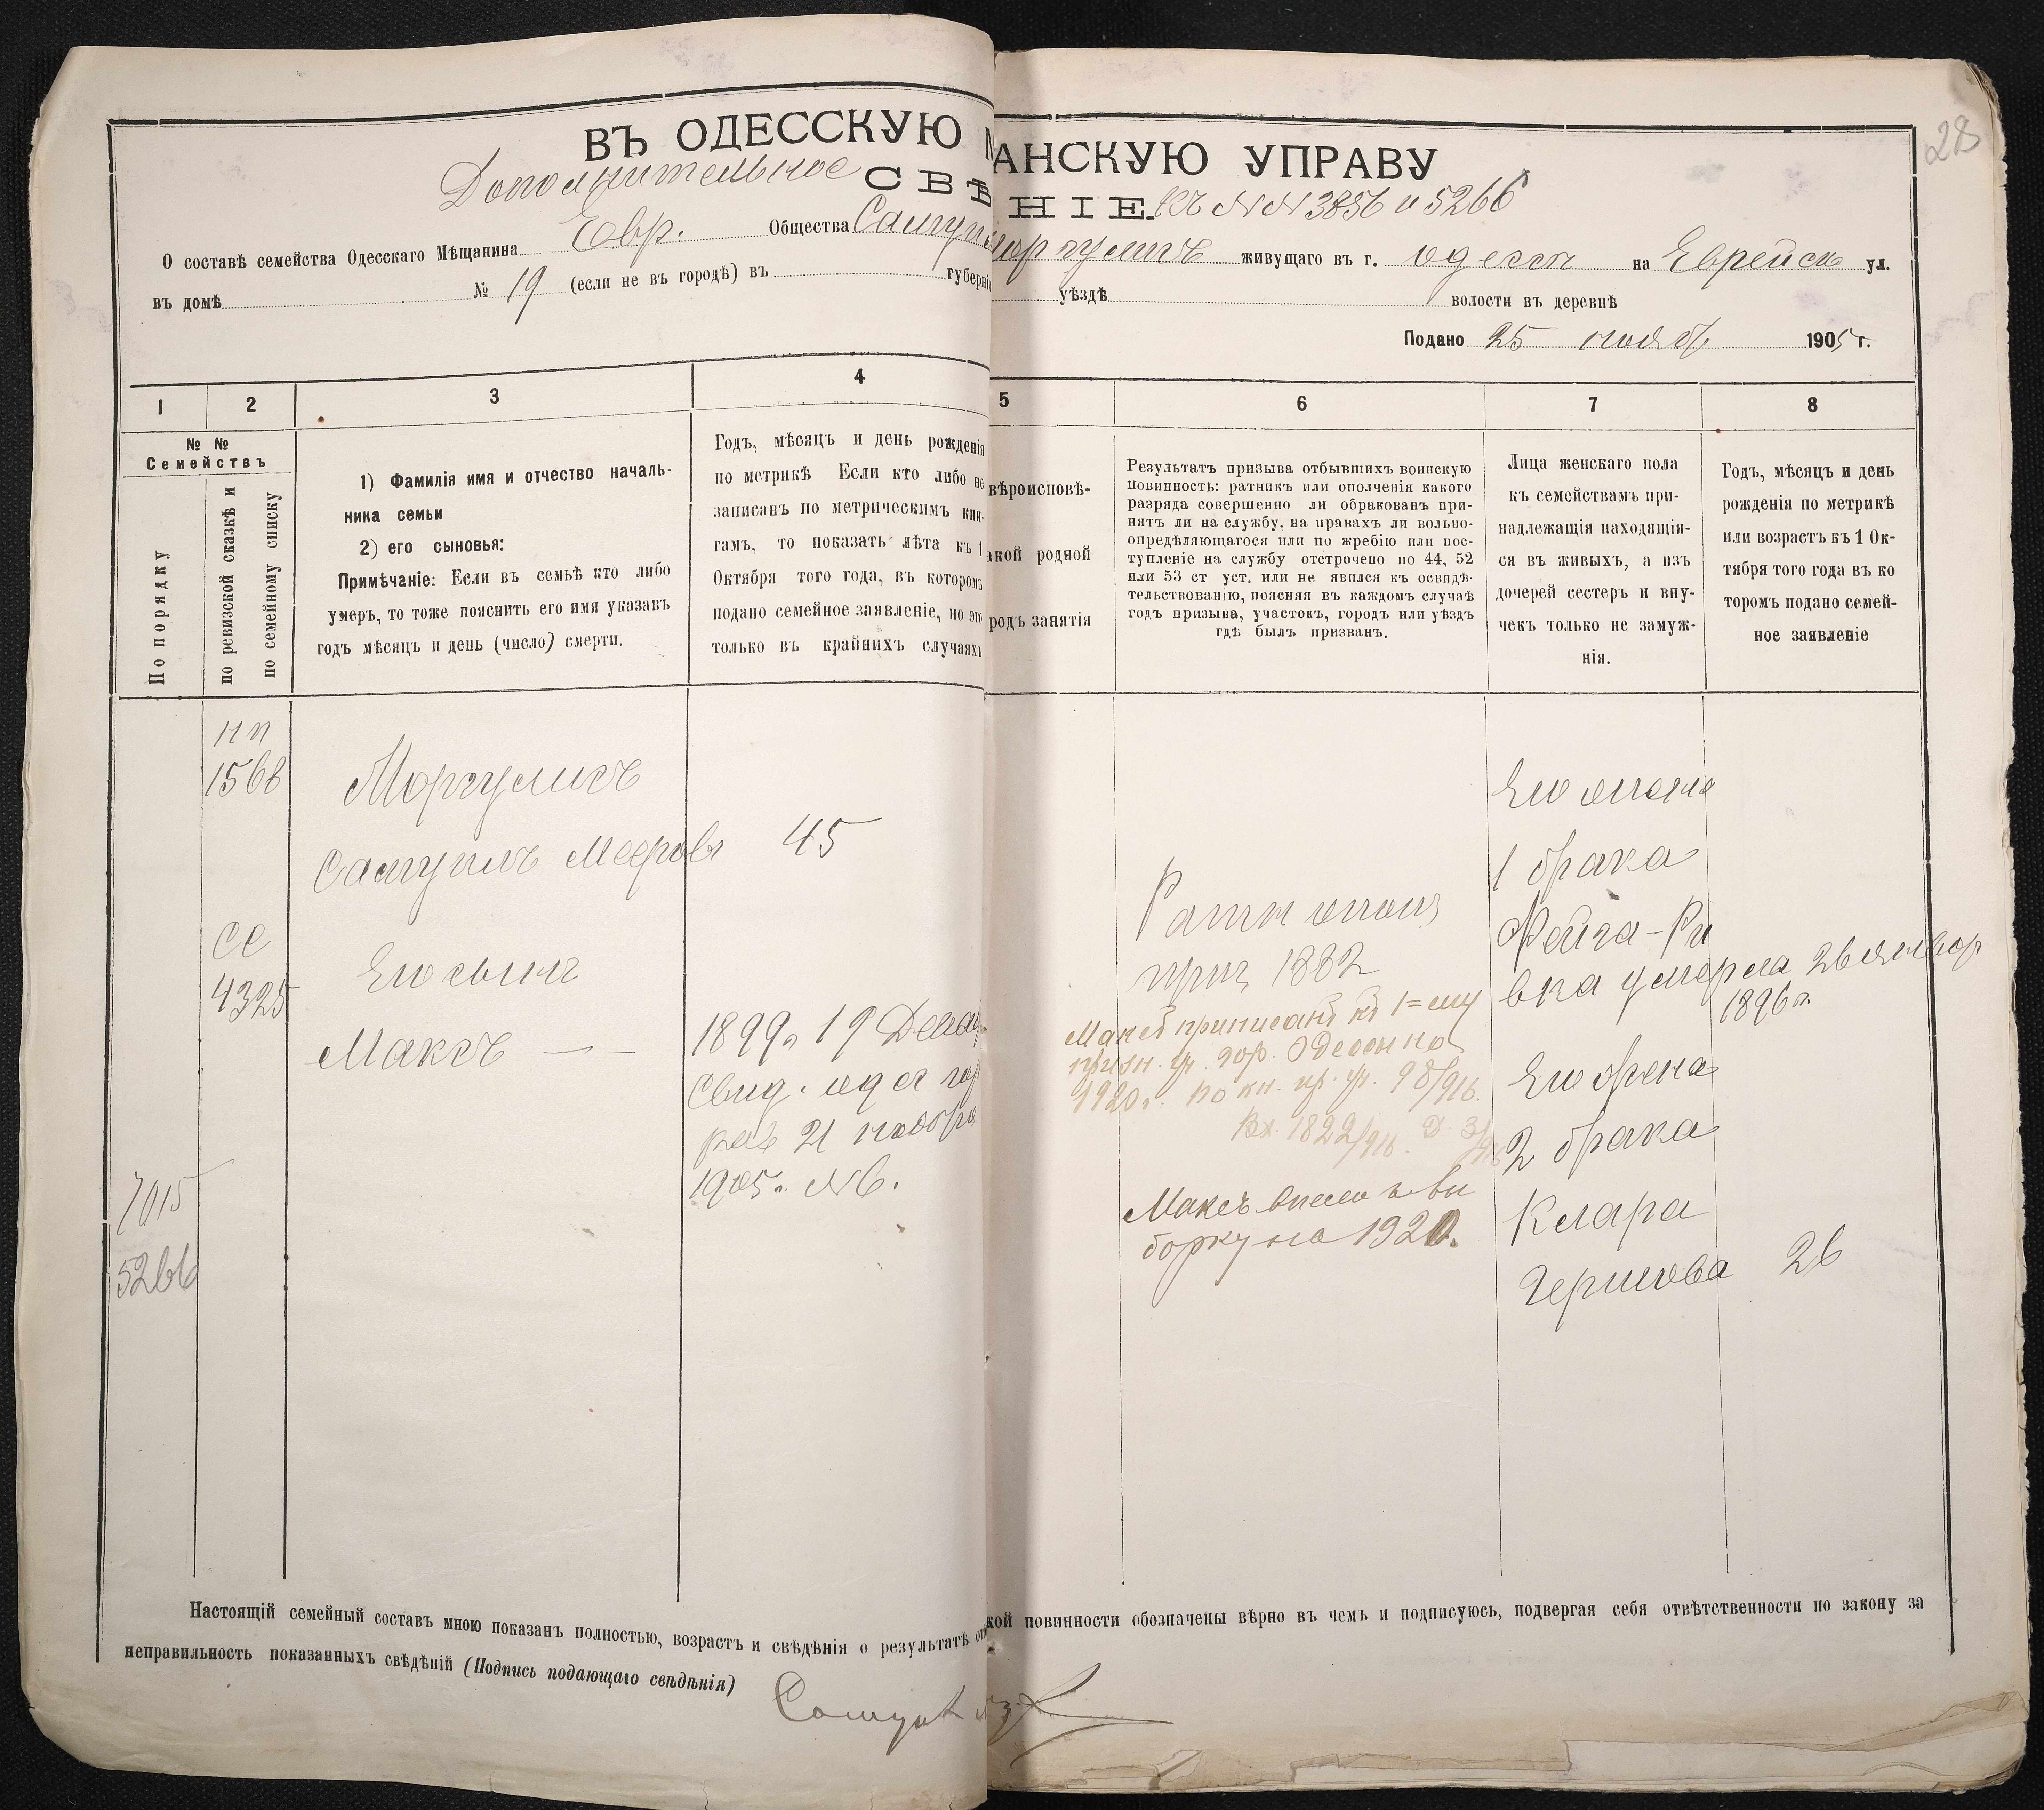 28
ВЪ ОДЕССКУЮ МѢЩАНСКУЮ УПРАВУ
Дополнительное СВѢ НІЕ къ NN 3856 и 5266
О составѣ семейства Одесскаго Мѣщанина Евр. Общества Самуил Моргулисъ живущаго въ г. Одессѣ на Еврейск ул.
въ домѣ № 19 (если не въ городѣ) въ губерніи уѣздѣ волости въ деревнѣ
Подано 25 нояб. 1905 г.
1 2 3 4 5 6 7 8
№ №
Семействъ
По порядку
по ревизской сказкѣ и
по семейному списку
1) Фамилія имя и отчество началь-
ника семьи
2) его сыновья:
Примѣчаніе: Если въ семьѣ кто либо
умеръ, то тоже пояснить его имя указавъ
годъ мѣсяцъ и день (число) смерти.
Годъ, мѣсяцъ и день рожденія
по метрикѣ Если кто либо не
записанъ по метрическимъ кни-
гамъ, то показать лѣта къ 1
Октября того года, въ которомъ
подано семейное заявленіе, но это
только въ крайнихъ случаяхъ
вѣроисповѣ-
акой родной
родъ занятія
Результатъ призыва отбывшихъ воинскую
повинность: ратникъ или ополченія какого
разряда совершенно ли обракованъ при-
нятъ ли на службу, на правахъ ли вольно-
опредѣляющагося или по жребію или пос-
тупленіе на службу отстрочено по 44, 52
или 53 ст уст. или не явился къ освидѣ-
тельствованію, поясняя въ каждомъ случаѣ
годъ призыва, участокъ, городъ или уѣздъ
гдѣ былъ призванъ.
Лица женскаго пола
къ семействамъ при-
надлежащія находящія-
ся въ живыхъ, а изъ
дочерей сестеръ и вну-
чекъ только не замуж-
нія.
Годъ, мѣсяцъ и день
рожденія по метрикѣ
или возрастъ къ 1 Ок-
тября того года въ ко
торомъ подано семей-
ное заявленіе
нп
1568
Моргулисъ
Самуилъ Мееровъ 45
се
4325
Его сынъ
Максъ — —
1899г 19 Декаб
Свид. Одес гор
рав 21 ноября
1905г. N6.
7015
5266
Ратн ополч
приз 1882
Максъ приписанъ къ 1=му
призн. уч. гор. Одессы на
1920г. по кн. пр. уч. 98/916.
Вх. 1822/916. Д. 3/916
Максъ внесенъ въ вы
борку на 1920.
Его жена
1 брака
Фейга-Ри
вка умерла 26 январ
1896г.
Его жена
2 брака
Клара
Гершова 26
Настоящій семейный составъ мною показанъ полностью, возрастъ и свѣдѣнія о результатѣ от кой повинности обозначены вѣрно въ чемъ и подписуюсь, подвергая себя отвѣтственности по закону за
неправильность показанныхъ свѣдѣній (Подпись подающаго свѣдѣнія)